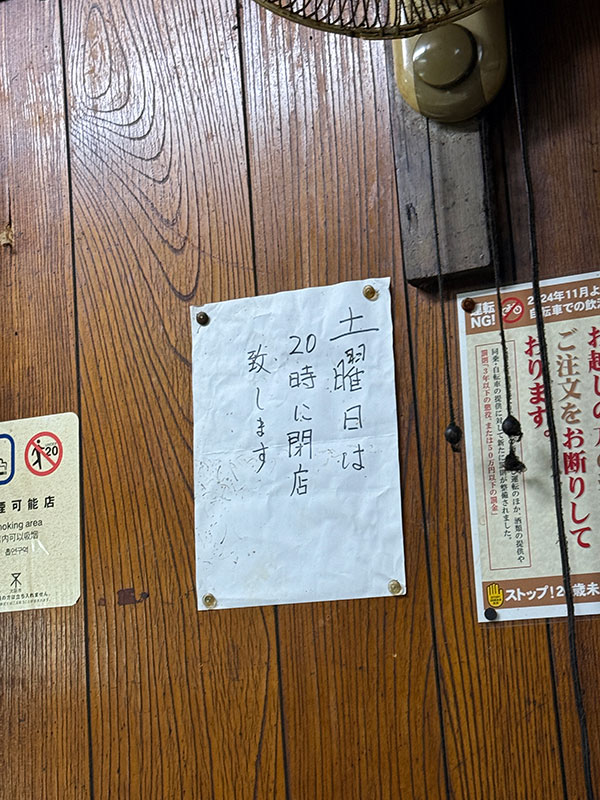 土曜日は
20時に閉店
致します
運転
NG!
2024年11月よ
自転車での飲
お越しの
ご注文をお断りして
おります。
転運転のほか、酒類の提供や
同乗・自転車の提供に対して新たに罰則が整備されました。
罰則「3年以下の懲役、または50万円以下の罰金」
ストップ!20歳未
20
煙可能店
moking area
内可以吸烟
흡연구역
大阪市
の方は立ち入れません。